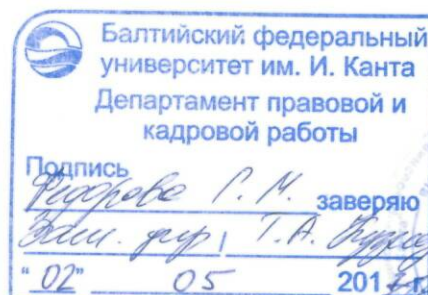 Балтийский федеральный
университет им. И. Канта
Департамент правовой и
кадровой работы
Подпись
Федорова Г. М. заверяю
Зам. дир. Т.А.
"02" 05 201 г.